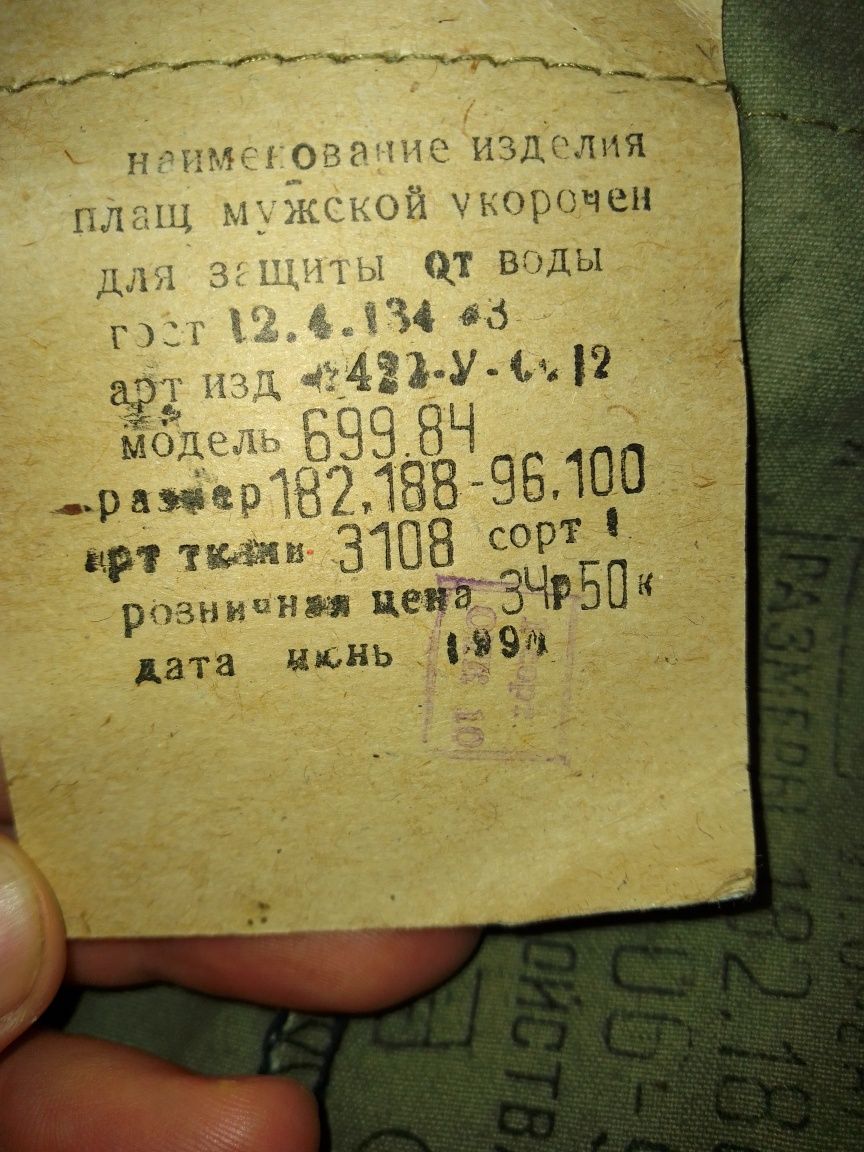 наименование изделия
плащ мужской укорочен
для защиты от воды
гост 12.4.134
арт изд
модель 699.84
размер 182.188-96.100
арт ткани 3108 сорт 1
розничная цена 34р50к
дата июнь
10
РАЗМЕРЫ 182.18